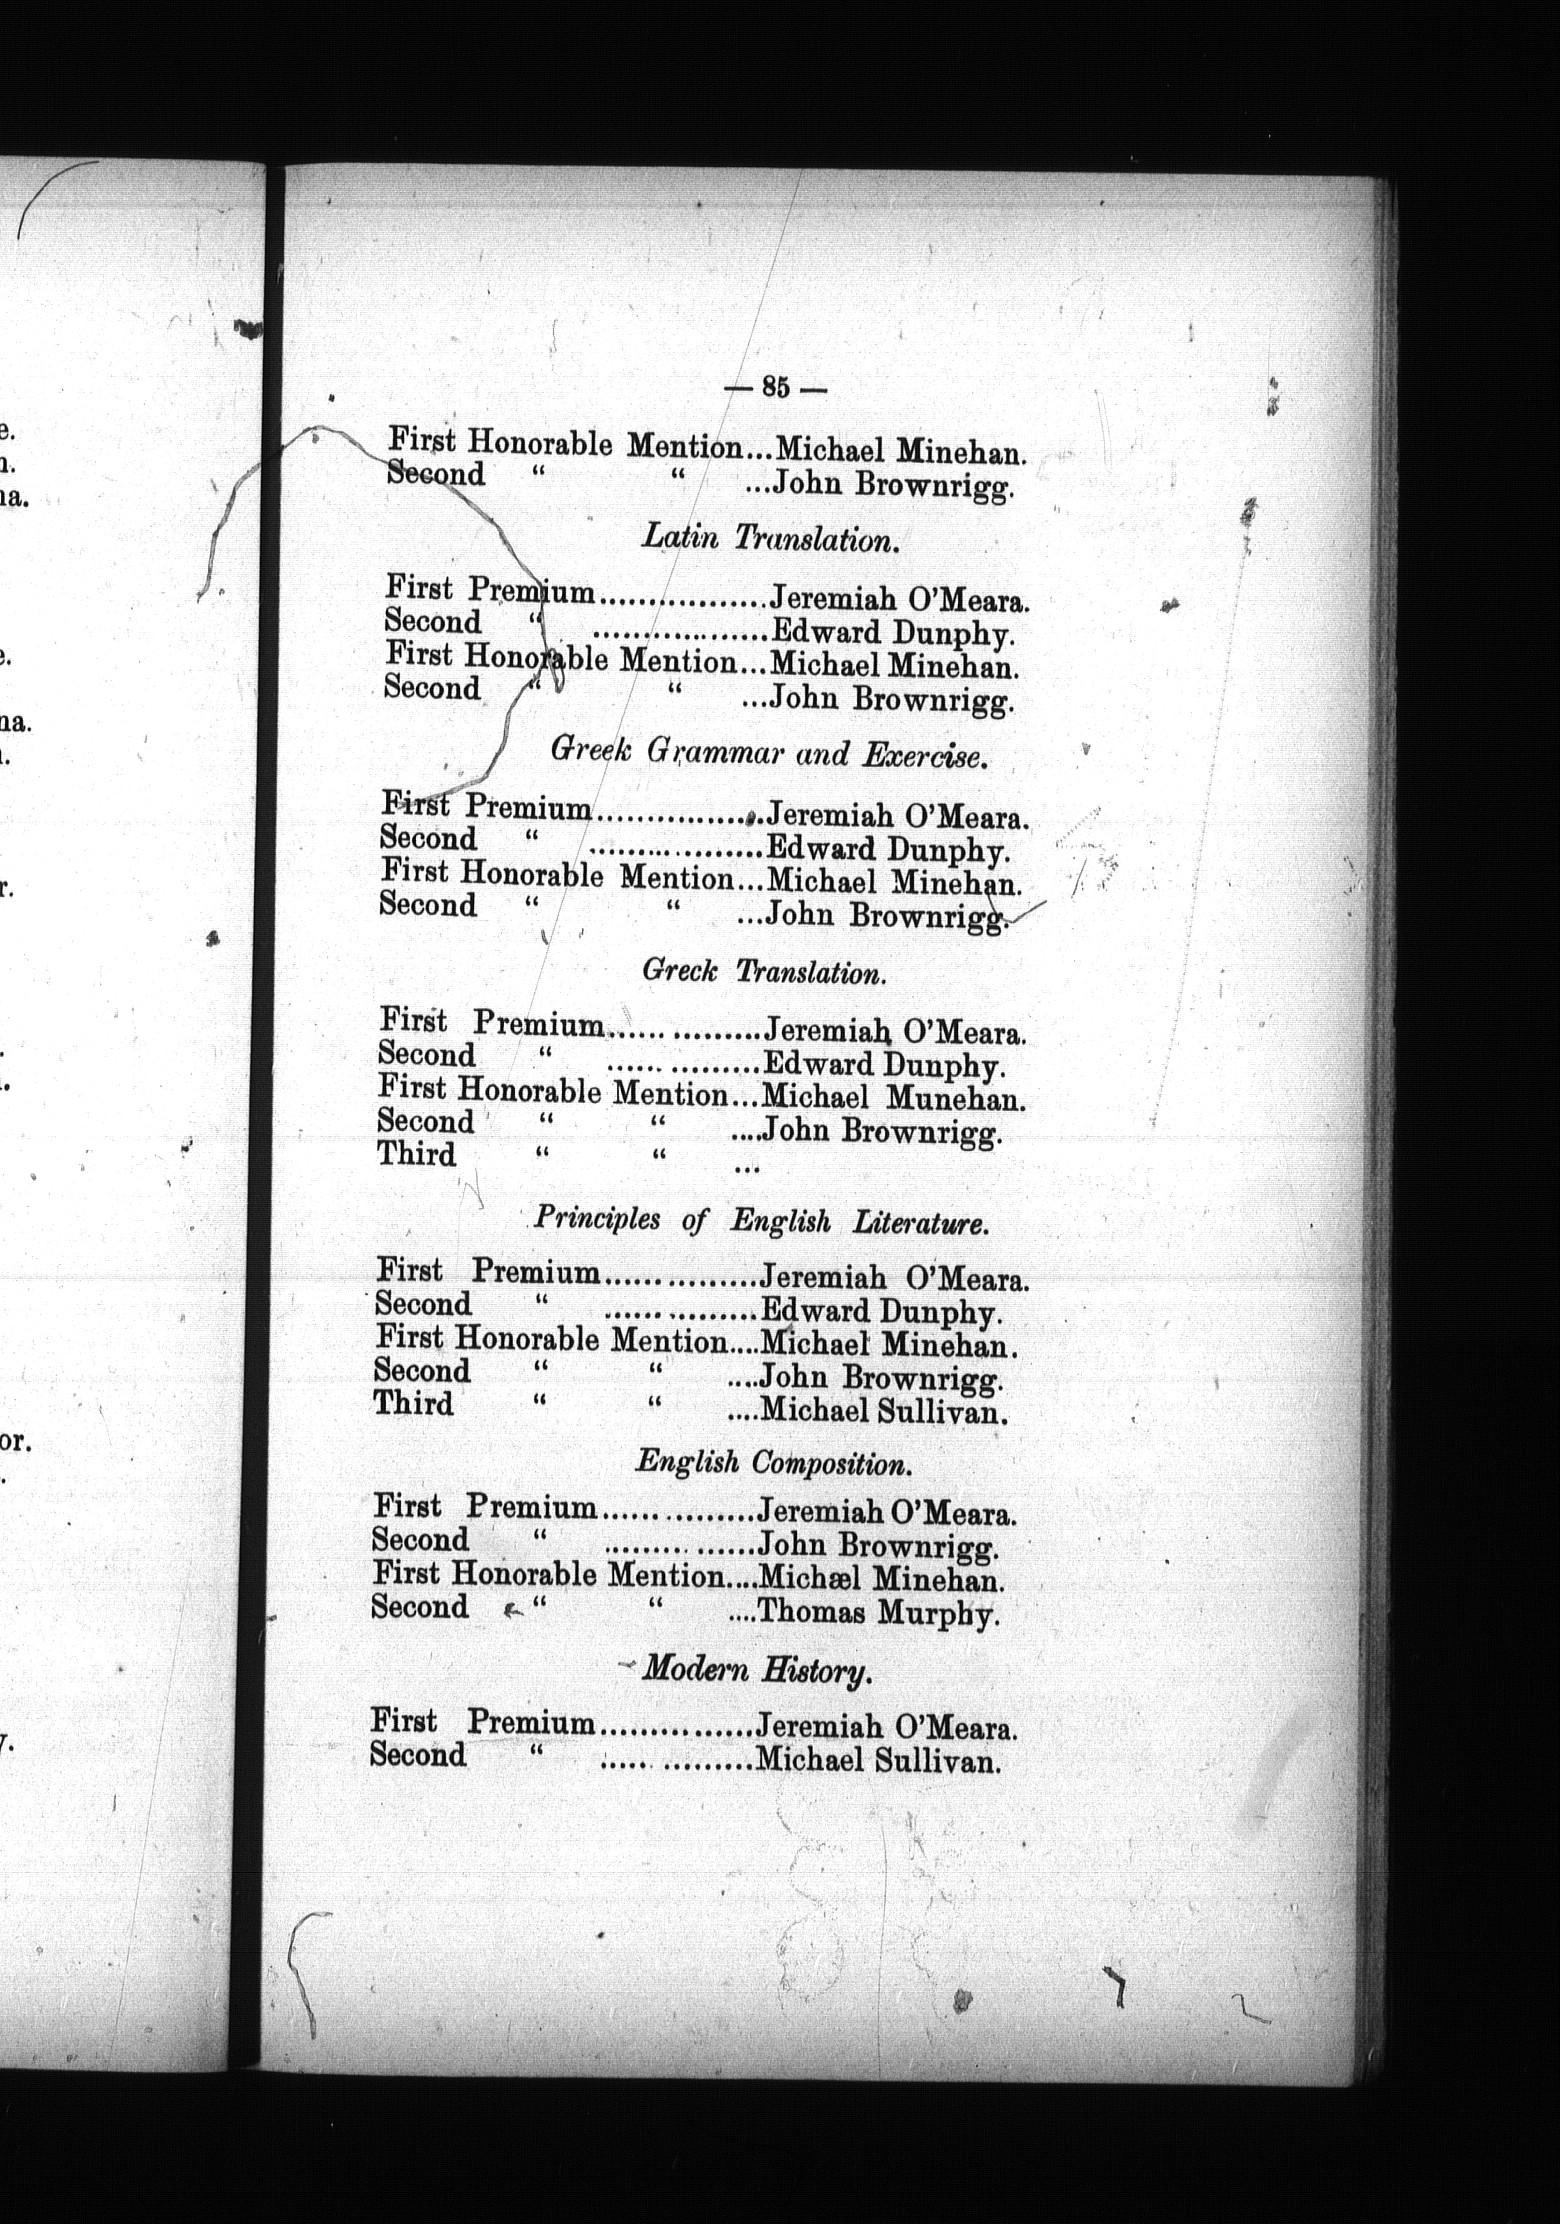 — 85 —
First Honorable Mention...Michael Minehan.
Second “ “ ...John Brownrigg.
Latin Translation.
First Premium.................Jeremiah O’Meara.
Second “ ..................Edward Dunphy.
First Honorable Mention...Michael Minehan.
Second “ “ ...John Brownrigg.
Greek Grammar and Exercise.
First Premium.................Jeremiah O’Meara.
Second “ ..................Edward Dunphy.
First Honorable Mention...Michael Minehan.
Second “ “ ...John Brownrigg.
Greck Translation.
First Premium...... .........Jeremiah O’Meara.
Second “ ...... .........Edward Dunphy.
First Honorable Mention...Michael Munehan.
Second “ “ ....John Brownrigg.
Third “ “ ...
Principles of English Literature.
First Premium...... .........Jeremiah O’Meara.
Second “ ...... .........Edward Dunphy.
First Honorable Mention....Michael Minehan.
Second “ “ ....John Brownrigg.
Third “ “ ....Michael Sullivan.
English Composition.
First Premium...... .........Jeremiah O’Meara.
Second “ ......... ......John Brownrigg.
First Honorable Mention....Michæl Minehan.
Second “ “ ....Thomas Murphy.
Modern History.
First Premium...............Jeremiah O’Meara.
Second “ ..... .........Michael Sullivan.